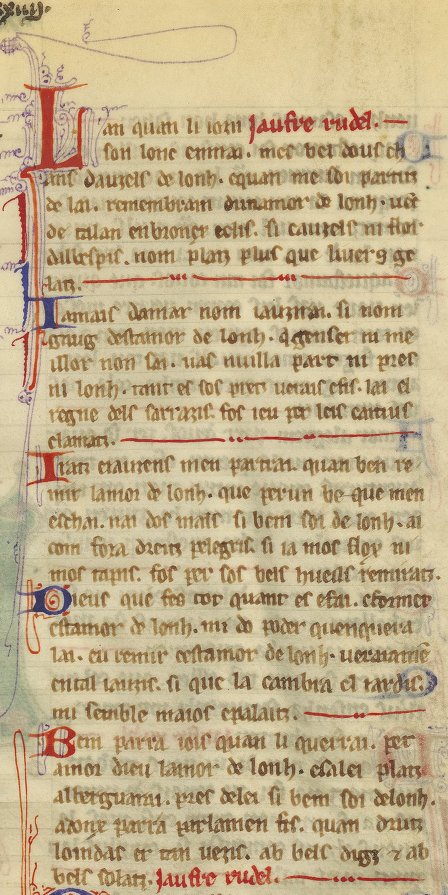 Lan quan li iorn Jaufre rudel.
son lonc enmai. mes bel dous ch
ans dauzels de lonh. equan me soi partitz
de lai. remembram dunamor de lonh. uau
de talan enbroncx eclis. si cauzels ni flor
dalbespis. nom platz plus que liuerns ge
latz.
Iamais damar nom iauzirai. si nom
gauig destamor de lonh. q̄ genser ni me
illor non sai. uas nuilla part ni pres
ni lonh. tant es sos pretz uerais efis. lai el
regne dels sarrazis. fos ieu per leis caitius
clamatz.
Iratz eiauzens men partrai. quan ben re
mir lamor de lonh. que perun be que men
eschai. nai dos mals si bem soi de lonh. ai
com fora dreitz pelegris. si ia mos floy ni
mos tapis. fos per sos bels hueills remiratz.
Dieus que fes tot quant es efai. eformet
estamor de lonh. mi do poder quenquera
lai. eu remir cestamor de lonh. ueraiamē
enital iauzis. si que la cambra el iardis.
mi semble maios epalaitz.
Bem parra iois quan li querrai. per
amor dieu lamor de lonh. esalei platz
alberguarai. pres delei si bem soi delonh.
adonx parra parlamen fis. quan drutz
loindas er tan uezis. ab bels digz ⁊ ab
bels solatz. Jaufre rudel.